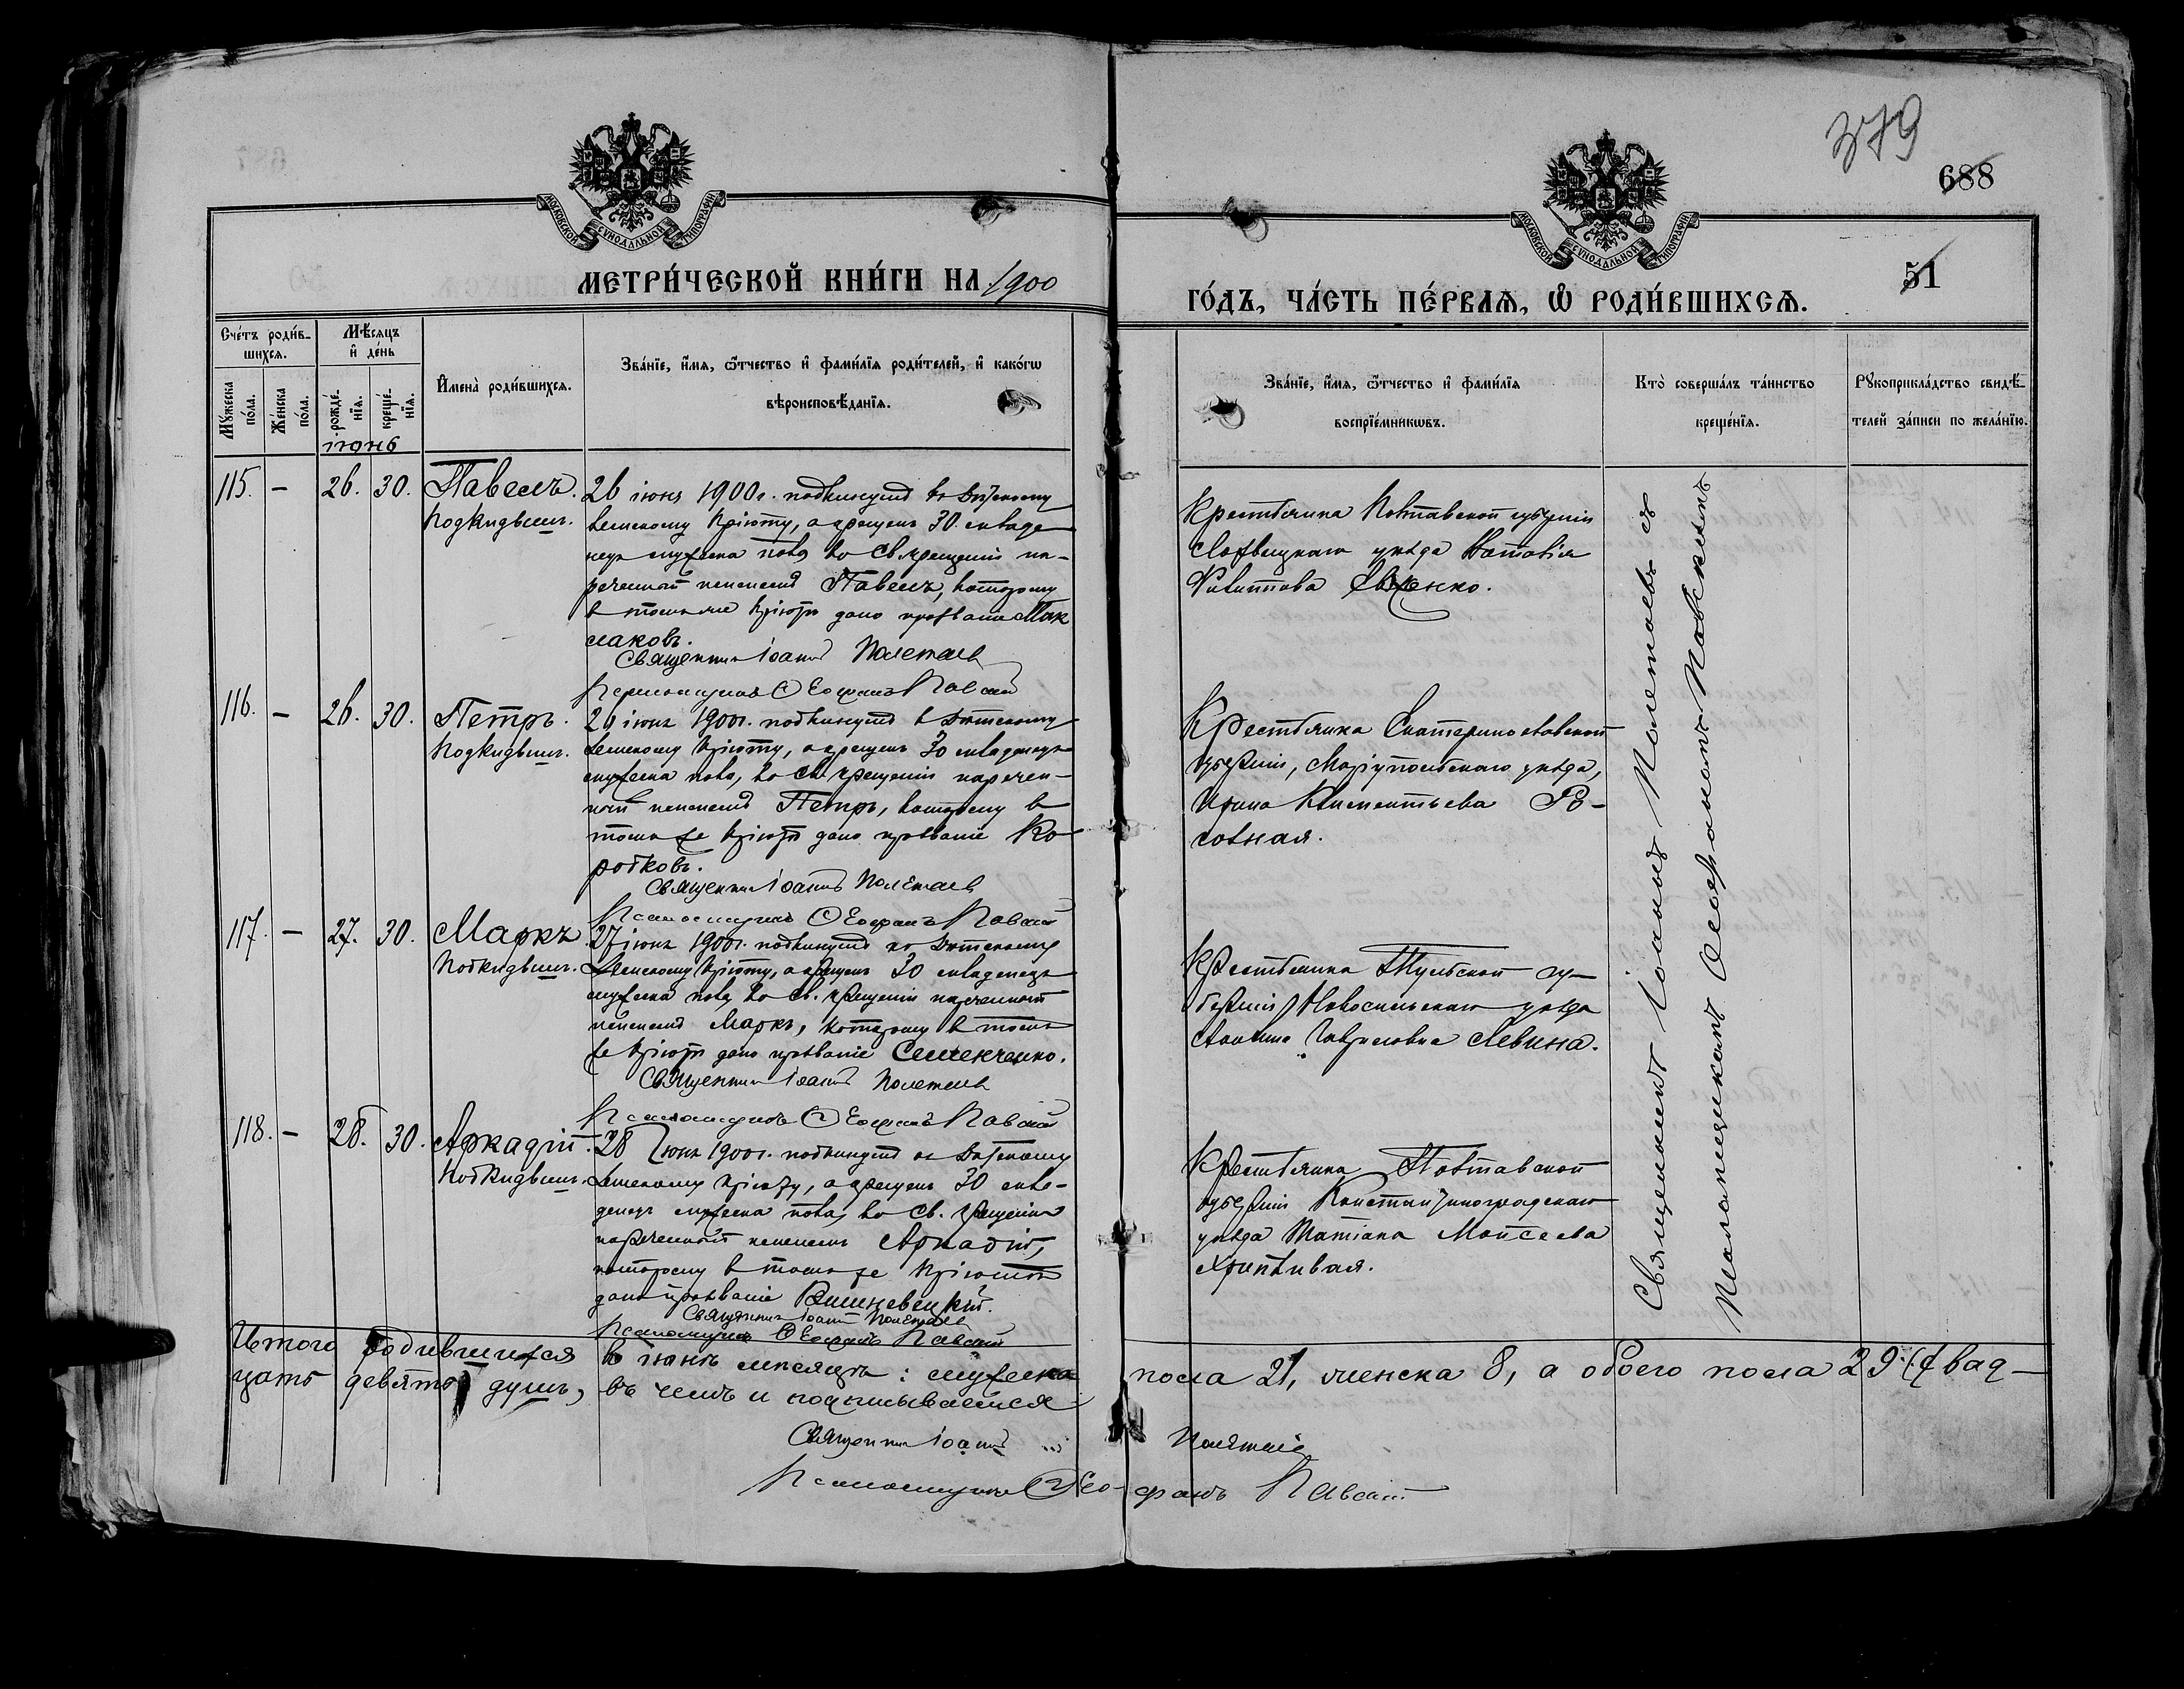 379
688
51
МОСКОВСКОЙ СѴНОДАЛЬНОЙ ТИПОГРАФІИ
МОСКОВСКОЙ СѴНОДАЛЬНОЙ ТИПОГРАФІИ
МЕТРИ́ЧЕСКОЙ КНИ́ГИ НА 1900
ГО́ДЪ, ЧА́СТЬ ПЕ́РВАЯ, Ѡ҆ РОДИ́ВШИХСЯ.
Сче́тъ роди́в-
шихся.
Мꙋ́жеска по́ла.
Же́нска по́ла.
Мѣ́сяцъ
и҆ де́нь
рожде́-
нїя.
креще́-
нїя.
Іюнь
И҆мена̀ роди́вшихся.
Зва́нїе, и҆́мя, ѻ҆́тчество и҆ фами́лїя роди́телей, и҆ како́гѡ
вѣроисповѣ́данїя.
Зва́нїе, и҆́мя, ѻ҆́тчество и҆ фами́лїя
воспрїе́мникѡвъ.
Кто̀ соверша́лъ та́инство
креще́нїя.
Рꙋкоприкла́дство свидѣ́-
телей за́писи по жела́нїю.
115. — 26. 30. Павелъ.
Подкидышъ.
26 іюня 1900 г. подкинутъ къ Дѣтскому
Земскому Пріюту, а крещенъ 30. младе-
нецъ мужеска пола, во Св. крещеніи на-
реченный именемъ Павелъ, которому
в томъ же Пріютѣ дано прозваніе Мак
лаковъ.
Священникъ Іоаннъ Полетаевъ
Псаломщикъ Ѳеофанъ Павскій
Крестьянка Полтавской губерніи
Лохвицкаго уѣзда
116. — 26. 30. Петръ.
Подкидышъ.
26 іюня 1900 г. подкинутъ къ Дѣтскому
Земскому Пріюту, а крещенъ 30 младенецъ
мужеска пола, во Св. крещеніи наречен-
ный именемъ Петръ, которому в
томъ же Пріютѣ дано прозваніе Ко-
ротковъ.
Священникъ Іоаннъ Полетаевъ
Псаломщикъ Ѳеофанъ Павскій
Крестьянка Екатеринославской
губерніи, Маріупольскаго уѣзда,
Ирина Климентьева
117. — 27. 30. Маркъ
Подкидышъ.
27 іюня 1900 г. подкинутъ къ Дѣтскому
Земскому Пріюту, а крещенъ 30 младенецъ
мужеска пола, во Св. крещеніи нареченный
именемъ Маркъ, которому в томъ
же Пріютѣ дано прозваніе Семенченко.
Священникъ Іоаннъ Полетаевъ
Псаломщикъ Ѳеофанъ Павскій
Крестьянка Тульской гу-
берніи Новосильскаго уѣзда
Гавриловна Левина.
118. — 28. 30. Аркадій.
Подкидышъ.
28 Іюня 1900 г. подкинутъ къ Дѣтскому
Земскому Пріюту, а крещенъ 30 мла-
денецъ мужеска пола, во Св. крещеніи
нареченный именемъ Аркадій,
которому в томъ же Пріютѣ
дано прозваніе Вишневецкій.
Священникъ Іоаннъ Полетаевъ
Псаломщикъ Ѳеофанъ Павскій
Крестьянка Полтавской
губерніи Константиноградскаго
уѣзда Татіана Моисеева
Священникъ Іоаннъ Полетаевъ съ
Псаломщикомъ Ѳеофаномъ Павскимъ
Итого родившихся в іюнѣ мѣсяцѣ: мужеска пола 21, женска 8, а обоего пола 29 (двад-
цать девять) душъ, въ чемъ и подписываемся
Священникъ Іоаннъ Полетаевъ
Псаломщикъ Ѳеофанъ Павскій